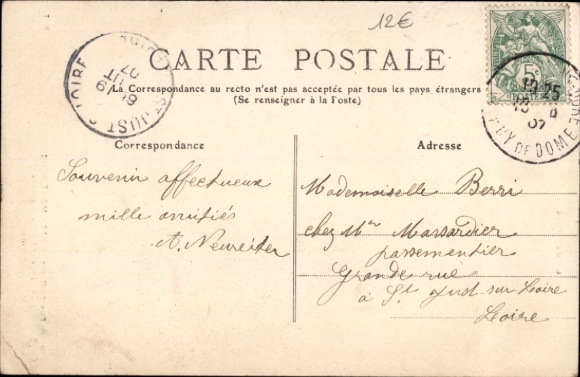 12€
CARTE POSTALE
La Correspondance au recto n'est pas acceptée par tous les pays étrangers
(Se renseigner à la Poste)
Correspondance
Adresse
Souvenir affectueux
mille amitiés
A. Neureiter
Mademoiselle Berri
chez Mr Massardier
passementier
Grande rue
à St Just sur Loire
Loire
ST JUST
LOIRE
5c
PUY DE DOME
07